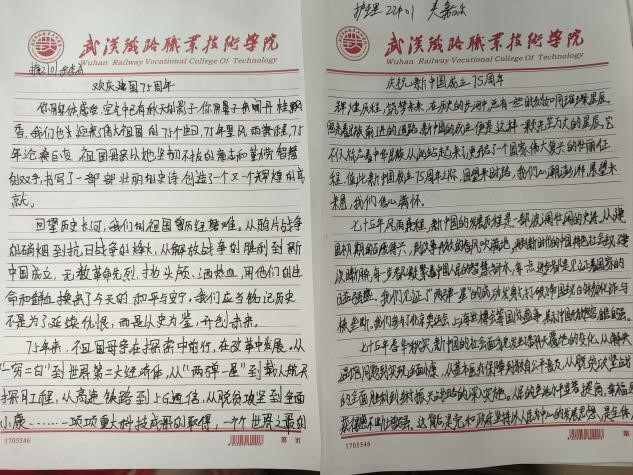 武汉铁路职业技术学院
Wuhan Railway Vocational College Of Technology
欢庆建国75周年
香,我们也来迎来伟大祖国的75个生日,75年栉风雨兼程,75
年沧桑巨变,祖国母亲以她坚韧不拔的意志和勤劳智慧
的双手,书写了一部部壮丽的史诗,创造了一个又一个辉煌的成
就。
回望历史长河,我们的祖国曾历经磨难。从鸦片战争
的硝烟到抗日战争的烽火,从解放战争的胜利到新
中国成立,无数革命先烈,抛头颅、洒热血,用他们的生
命和鲜血换来了今天的和平与安宁,我们应当铭记历史
不是为了延续仇恨,而是以史为鉴,开创未来。
75年来,不且国母亲在探索中前行,在改革中发展。从
“一穷二白”到世界第二大经济体,从“两弹一星”到载人航天
探月工程,从高速铁路到5G通信,从脱贫攻坚到全面
小康……一项项重大科技成果的取得,一个个世界之最的
1705546
第 页
护理2201 吴嘉乐
武汉铁路职业技术学院
Wuhan Railway Vocational College Of Technology
庆祝新中国成立75周年
辉煌历程,筑梦未来,在历史的长河中,总有一些时刻如同璀璨星辰,
照亮着民族前进的道路,新中国的成立便是这样一颗光芒万丈的星辰,它
不仅标志着中华民族从此站起来了,更开启了一个国家伟大复兴的壮丽征
程,值此新中国成立75周年之际,回望来时路,我们心潮澎湃,展望未
来,我们信心满怀。
七十五年风雨兼程,新中国的发展历程是一部波澜壮阔的史诗,从建
国初期的百废待兴,到改革开放的春风吹满地,再到新时代的中国特色社会主义建
设,每一步都凝聚着中国人民的智慧和汗水,每一点进步都见证着国家的
日益强盛。我们见证了“两弹一星”的成功发射,打破了
我们参与了北京奥运会,上海世博会等国际盛事,展示中国的
七十五年春华秋实,新中国的社会面貌发生了翻天覆地的变化,从解决
温饱问题到实现全面小康,从基本医疗保障到教育公平普及,从脱贫攻坚战
的全面胜利到乡村振兴战略的深入实施,人民的生活水平显著提高,幸福感
获得感不断增强。这背后是党和政府坚持以人民为中心的发展思想,是全体人
1705546
第 页